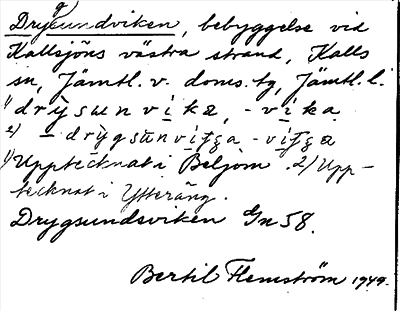 Drygsundviken, bebyggelse vid
Kallsjöns västra strand, Kalls
sn, Jämtl. v. doms.tg, Jämtl. l.
1) drỳsunvika, -vika
2) drỳgsŭnviʃʒa -viʃʒa
1) Upptecknat i Beljom. 2) Upp-
tecknat i Ytteräng.
Drygsundsviken Gn 58.
Bertil Flemström 1949.